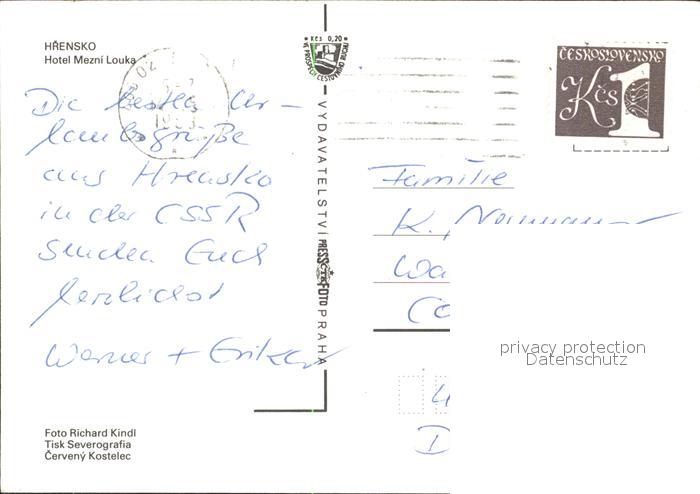 HŘENSKO
Hotel Mezní Louka
Die besten Ur-
laubsgrüße
aus Hrensko
in der CSSR
senden Euch
herzlichst
Werner + Erika
Foto Richard Kindl
Tisk Severografia
Červený Kostelec
Kčs 0,20
VE PROSPĚCH CESTOVNÍHO RUCHU
VYDAVATELSTVÍ PRESSFOTO PRAHA
ČESKOSLOVENSKO
Kčs 1
Familie
K. Naumann
Wa
privacy protection
Datenschutz
4
D